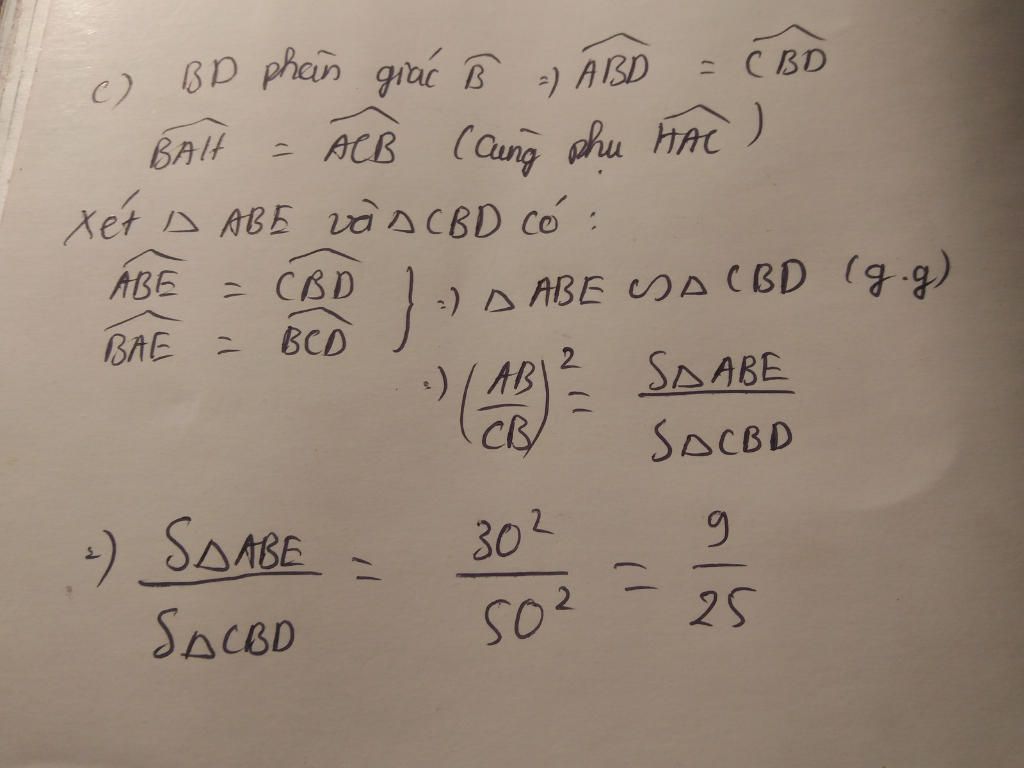 c) BD phân giác B̂ => ABD̂ = CBD̂
BAĤ = ACB̂ (Cùng phụ HAĈ)
Xét Δ ABE và Δ CBD có:
ABÊ = CBD̂
BAÊ = BCD̂ } => Δ ABE ∽ Δ CBD (g.g)
=> (AB/CB)² = SΔABE/SΔCBD
=> SΔABE/SΔCBD = 30²/50² = 9/25